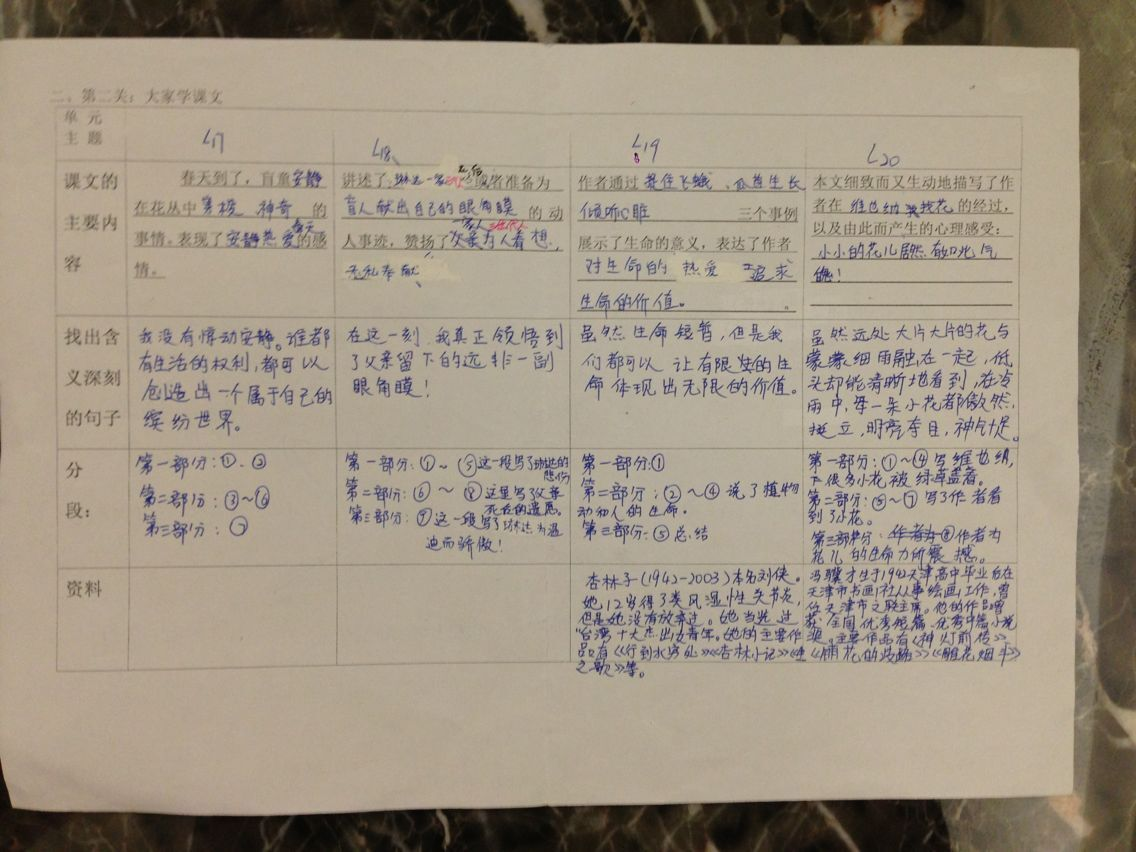 二、第二关：大家学课文
单元
主题
L17
L18、
L19
L20
课文的
主要内
容
春天到了，盲童安静
在花丛中穿梭、神奇的
事情。表现了安静热爱春天的感
情。
讲述了琳达一家 先后 或者准备为
盲人献出自己的眼角膜的动
人事迹，赞扬了父亲为人着想，
无私奉献
作者通过捉住飞蛾、瓜苗生长
倾听心脏 三个事例
展示了生命的意义，表达了作者
对生命的热爱 追求
生命的价值。
本文细致而又生动地描写了作
者在维也纳寻找花的经过，
以及由此而产生的心理感受：
小小的花儿居然有如此气
魄！
找出含
义深刻
的句子
我没有惊动安静。谁都
有生活的权利，都可以
创造出一个属于自己的
缤纷世界。
在这一刻、我真正领悟到
了父亲留下的远非一副
眼角膜！
虽然生命短暂，但是我
们都可以让有限发的生
命体现出无限的价值。
虽然远处大片大片的花与
蒙蒙细雨融在一起，低
头却能清晰地看到，在冷
雨中，每一朵小花都傲然
挺立，明亮夺目，神气十足。
分
段：
第一部分：①、②
第二部分：③～⑥
第三部分：⑦
第一部分：①～⑤这一段写了琳达的
悲伤
第二部分：⑥～⑧这里写了父亲
死去的遗愿。
第三部分：⑨这一段写了琳达为温
迪而骄傲！
第一部分：①
第二部分：②～④说了植物
动和人的生命。
第三部分：⑤总结
第一部分：①～④写维也纳
下很多小花被绿草盖着。
第二部分：⑤～⑦写了作者看
到了小花。
第三部分：作者为⑧作者为
花儿的生命力所震撼。
资料
杏林子（1942-2003）本名刘侠。
她12岁得了类风湿性关节炎，
但是她没有放弃过。她当选过
"台湾十大杰出女青年。她的主要作
品有《行到水穷处》《杏林小记》《生
之歌》等。
冯骥才生于1942天津高中毕业后在
天津市书画社从事绘画工作，曾
任天津市文联主席。他的作品曾
获全国优秀短篇、优秀中篇小说
奖。主要作品有《神灯前传》
《雕花烟斗》